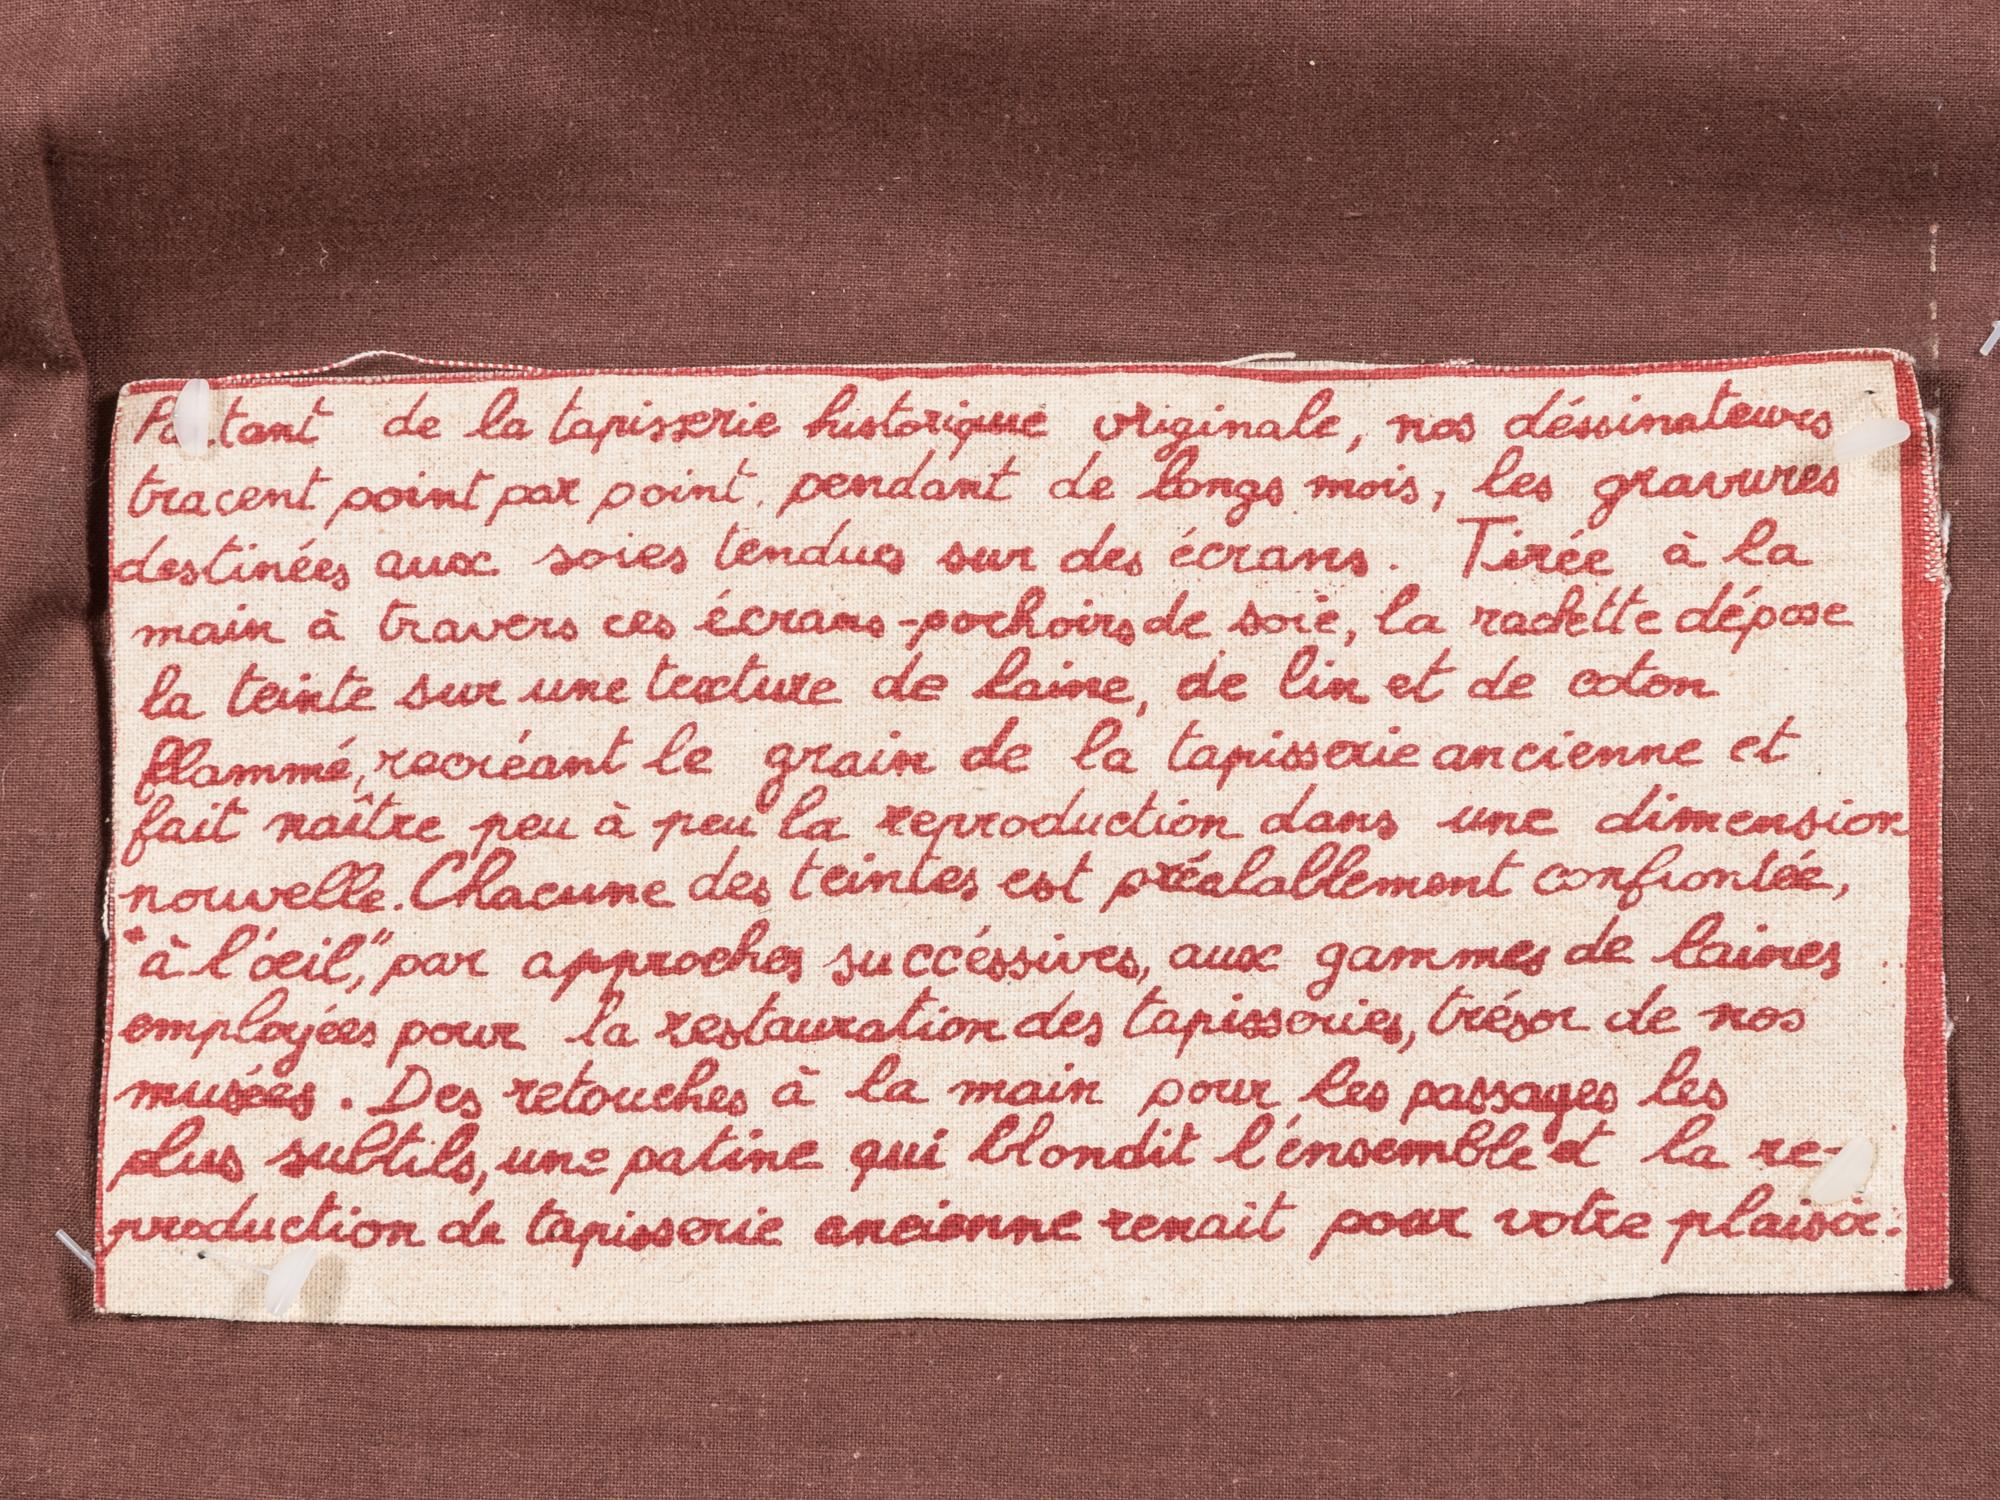 Partant de la tapisserie historique originale, nos déssinateurs
tracent point par point, pendant de longs mois, les gravures
destinées aux soies tendues sur des écrans. Tirée à la
main à travers ces écrans-pochoirs de soie, la raclette dépose
la teinte sur une texture de laine, de lin et de coton
flammé, recréant le grain de la tapisserie ancienne et
fait naître peu à peu la reproduction dans une dimension
nouvelle. Chacune des teintes est préalablement confrontée,
"à l'œil," par approches succéssives, aux gammes de laines
employées pour la restauration des tapisseries, trésor de nos
musées. Des retouches à la main pour les passages les
plus subtils, une patine qui blondit l'ensemble et la re-
production de tapisserie ancienne renait pour votre plaisir.